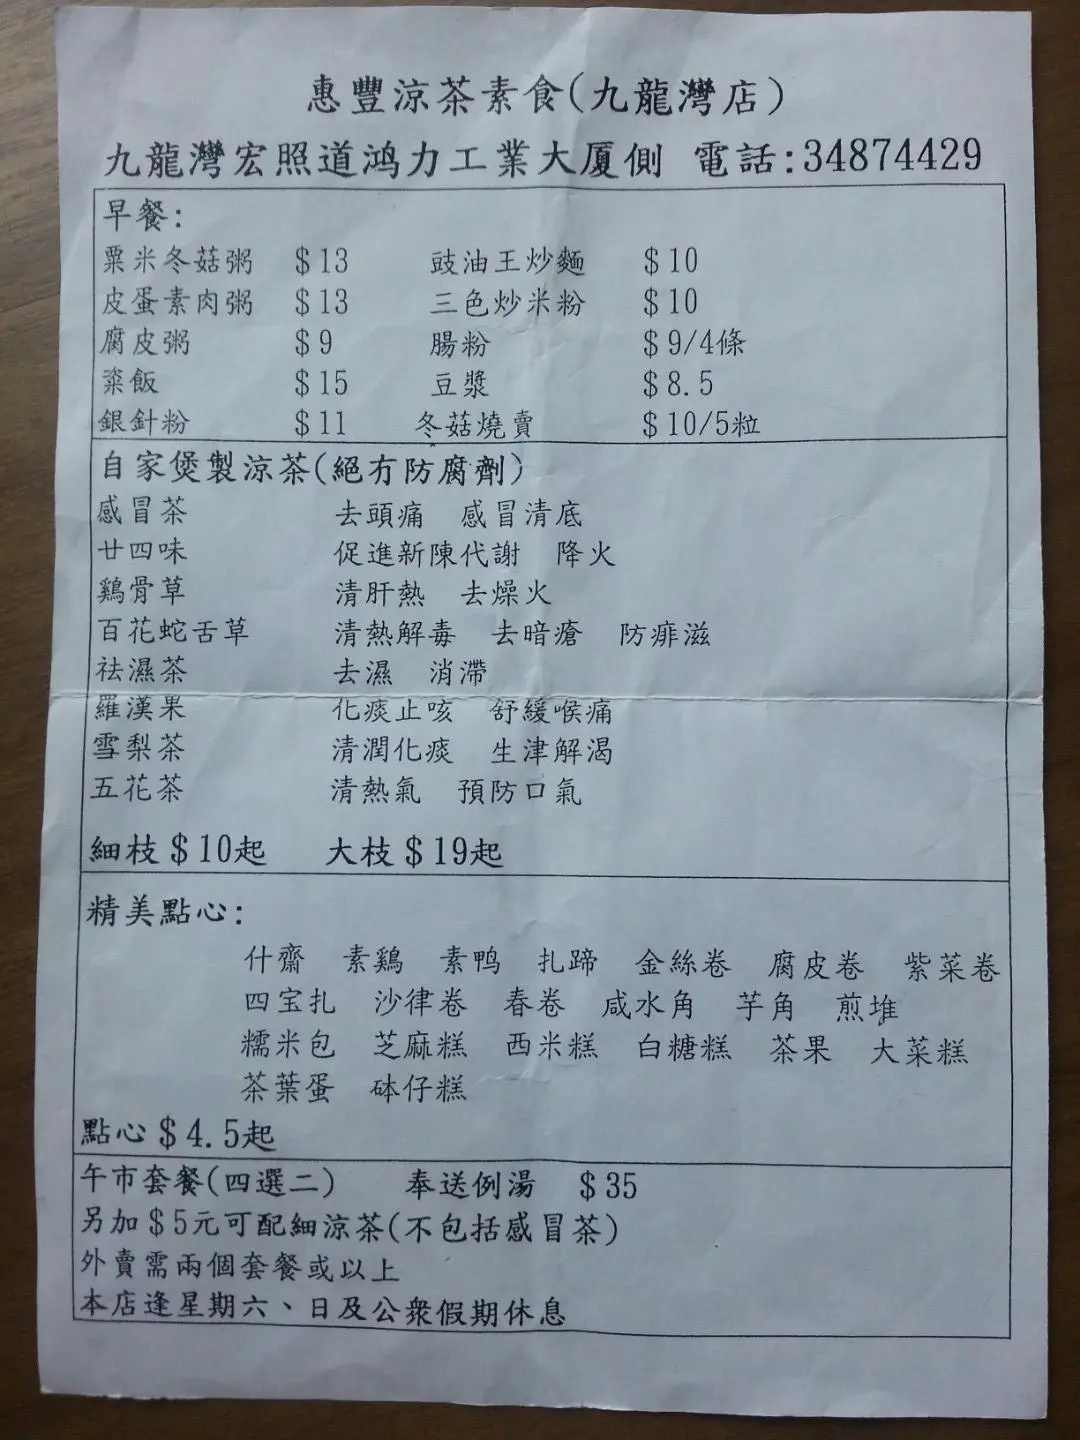 惠豐涼茶素食(九龍灣店)
九龍灣宏照道鴻力工業大厦側 電話:34874429
早餐:
粟米冬菇粥 $13 豉油王炒麵 $10
皮蛋素肉粥 $13 三色炒米粉 $10
腐皮粥 $9 腸粉 $9/4條
粢飯 $15 豆漿 $8.5
銀針粉 $11 冬菇燒賣 $10/5粒
自家煲製涼茶(絕冇防腐劑)
感冒茶 去頭痛 感冒清底
廿四味 促進新陳代謝 降火
鷄骨草 清肝熱 去燥火
百花蛇舌草 清熱解毒 去暗瘡 防痱滋
祛濕茶 去濕 消滯
羅漢果 化痰止咳 舒緩喉痛
雪梨茶 清潤化痰 生津解渴
五花茶 清熱氣 預防口氣
細枝$10起 大枝$19起
精美點心:
什齋 素鷄 素鸭 扎蹄 金絲卷 腐皮卷 紫菜卷
四宝扎 沙律卷 春卷 咸水角 芋角 煎堆
糯米包 芝麻糕 西米糕 白糖糕 茶果 大菜糕
茶葉蛋 砵仔糕
點心$4.5起
午市套餐(四選二) 奉送例湯 $35
另加$5元可配細涼茶(不包括感冒茶)
外賣需兩個套餐或以上
本店逢星期六、日及公衆假期休息